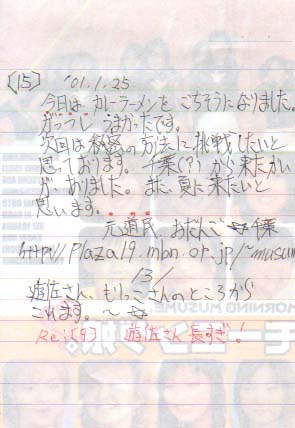 [15] '01.1.25.
今日は、カレーラーメンをごちそうになりました。
がっつし うまかったです。
次回は秘密の方法に挑戦したいと
思っております。千葉(?)から来たかい
が、ありました。また、夏に来たいと
思います。
元道民 おだんご☆千葉
http://plaza19.mbn.or.jp/~musum
/3/
遊佐さん、もりっこさんのところから
これます。～☆
遊佐さん長すぎ!
MORNING MUSUME
モーニング娘。